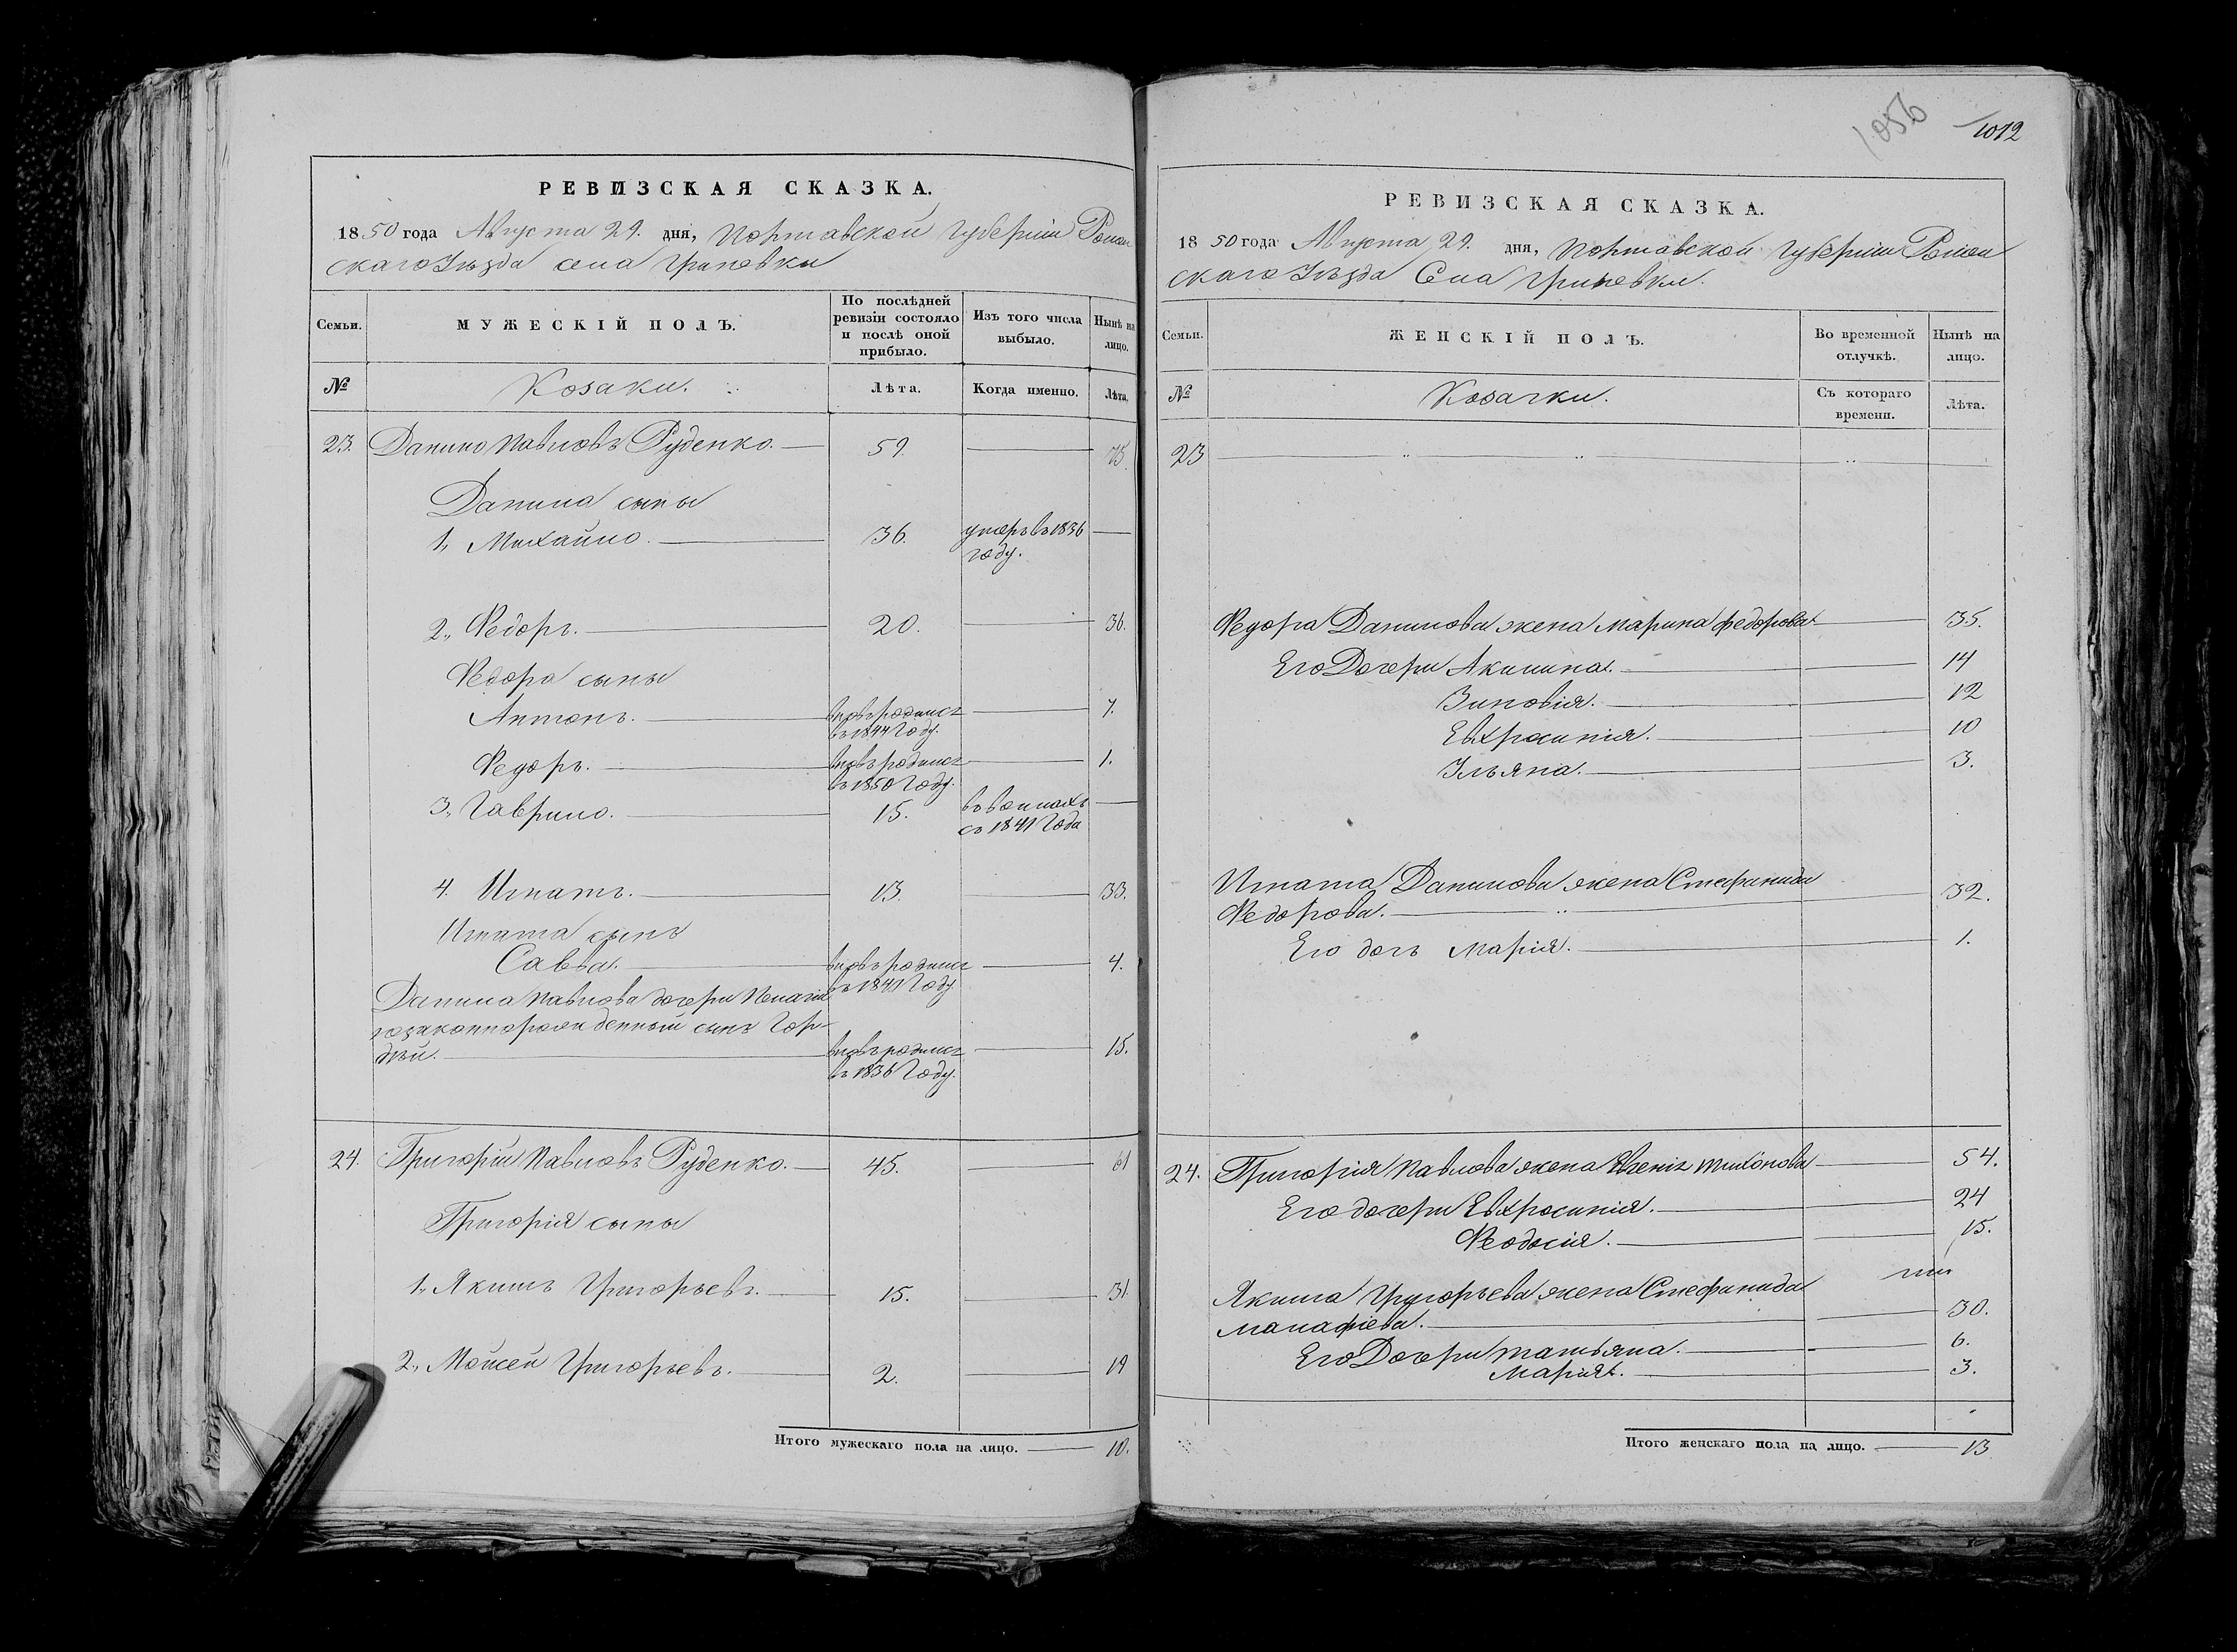 РЕВИЗСКАЯ СКАЗКА.
1850 года Августа 29. дня, Полтавской Губерніи Ромен
скаго Уѣзда села Гриневки
Семьи.
МУЖЕСКІЙ ПОЛЪ.
По послѣдней ревизіи состояло и послѣ оной прибыло.
Изъ того числа выбыло.
Нынѣ на лицо.
№
Козаки.
Лѣта.
Когда именно.
Лѣта.
23. Данило Павловъ Руденко. 59. 75.
Данила сыны
1, Михайло. 36. умеръ въ 1836
году.
2, Федоръ. 20. 36.
Федора сыны
Антонъ. вновьродилсъ 7.
въ 1844 Году.
Федоръ. вновьродилсъ 1.
въ 1850 Году.
3, Гаврило. 15. въ воинахъ
съ 1841 Года
4. Игнатъ. 13. 33.
Игната сынъ
Савва. вновьродилсъ 4.
въ 1847 Году.
Данила Павлова дочери Пелагіи
незаконнорожденный сынъ Гор-
дѣй. вновьродилсъ 15.
въ 1836 Году.
24. Григорій Павловъ Руденко. 45. 61
Григорія сыны
1, Якимъ Григорьевъ. 15. 31.
2, Мойсей Григорьевъ. 2. 19
Итого мужескаго пола на лицо. 10.
1056
1012
РЕВИЗСКАЯ СКАЗКА.
1850 года Августа 29. дня, Полтавской Губерніи Ромен
скаго Уѣзда Села Гриневки.
Семьи.
ЖЕНСКІЙ ПОЛЪ.
Во временной отлучкѣ.
Нынѣ на лицо.
№
Козачки.
Съ котораго времени.
Лѣта.
23
Федора Данилова жена Марина Федорова 35.
Его Дочери Акилина. 14
Зиновія. 12
Евхросинія. 10
Ульяна. 3.
Игната Данилова жена Стефанида
Федорова. 32.
Его дочь Марія. 1.
24. Григорія Павлова жена Евгенія Тихонова 54.
Его дочери Евхросинія. 24
Феодосія. 15.
Якима Григорьева жена Стефанида
Манафіева. 30.
Его Дочери Татьяна. 6.
Марія. 3.
Итого женскаго пола на лицо. 13